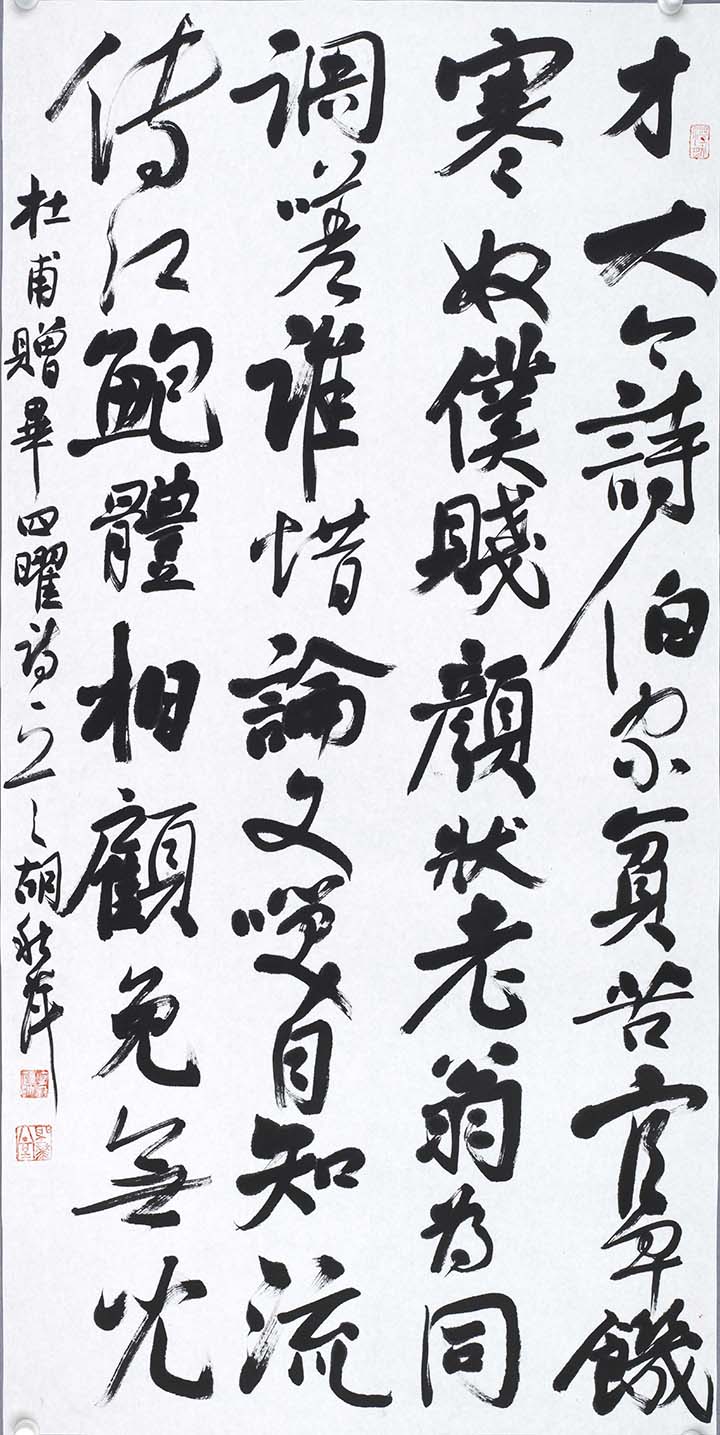 才大今詩伯家貧苦宦卑饑
寒奴僕賤顏狀老翁為同
調嗟誰惜論文咲自知流
傳江鮑體相顧免無兒
杜甫贈畢四曜詩 胡秋萍